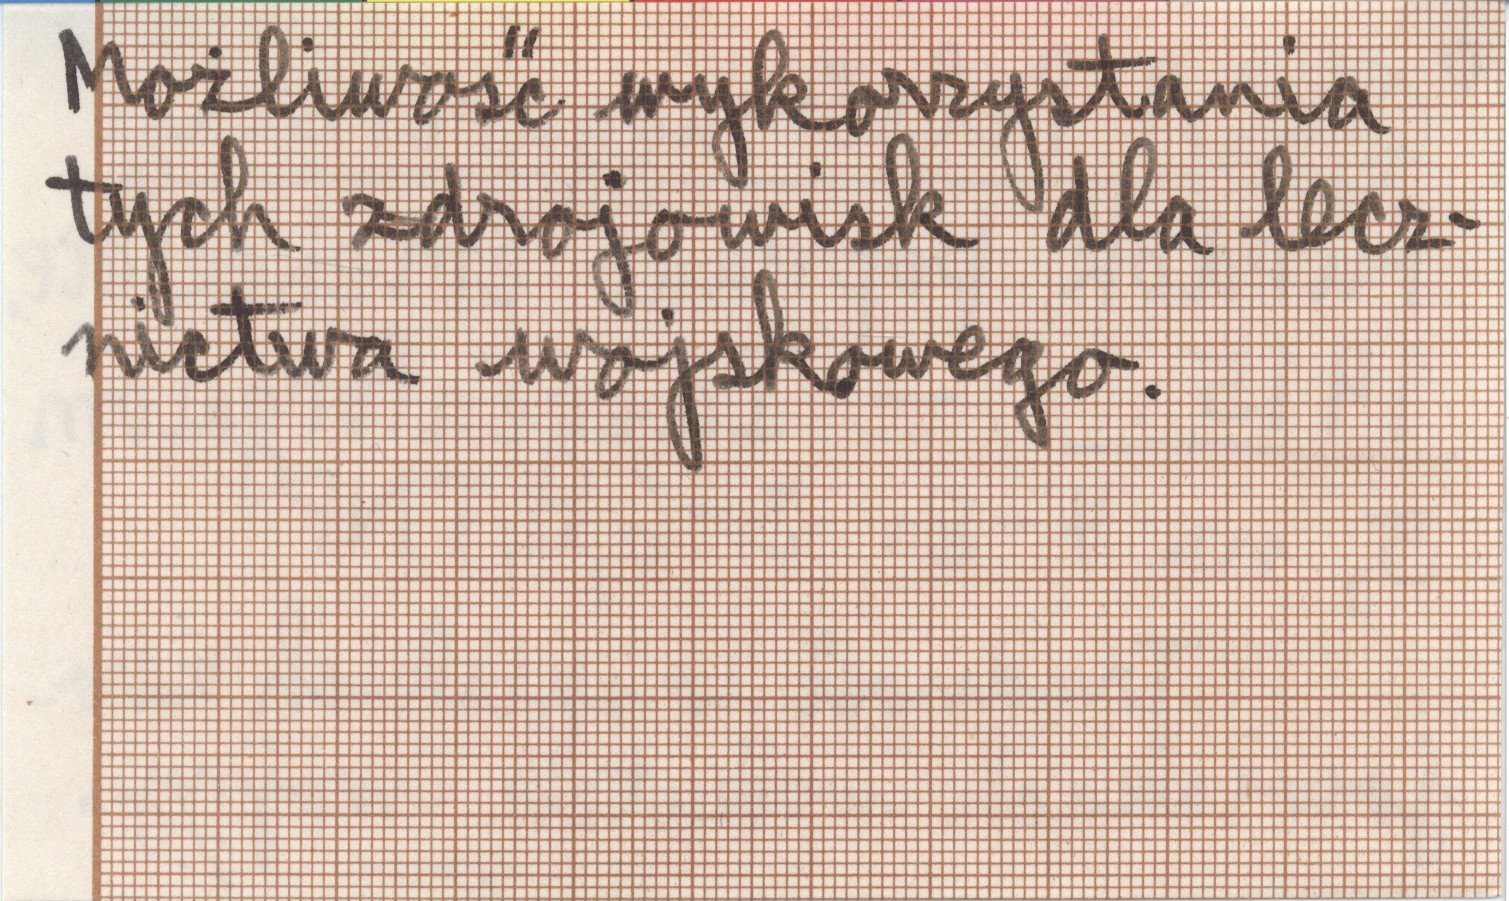 Możliwość wykorzystania
tych zdrojowisk dla lecz-
nictwa wojskowego.